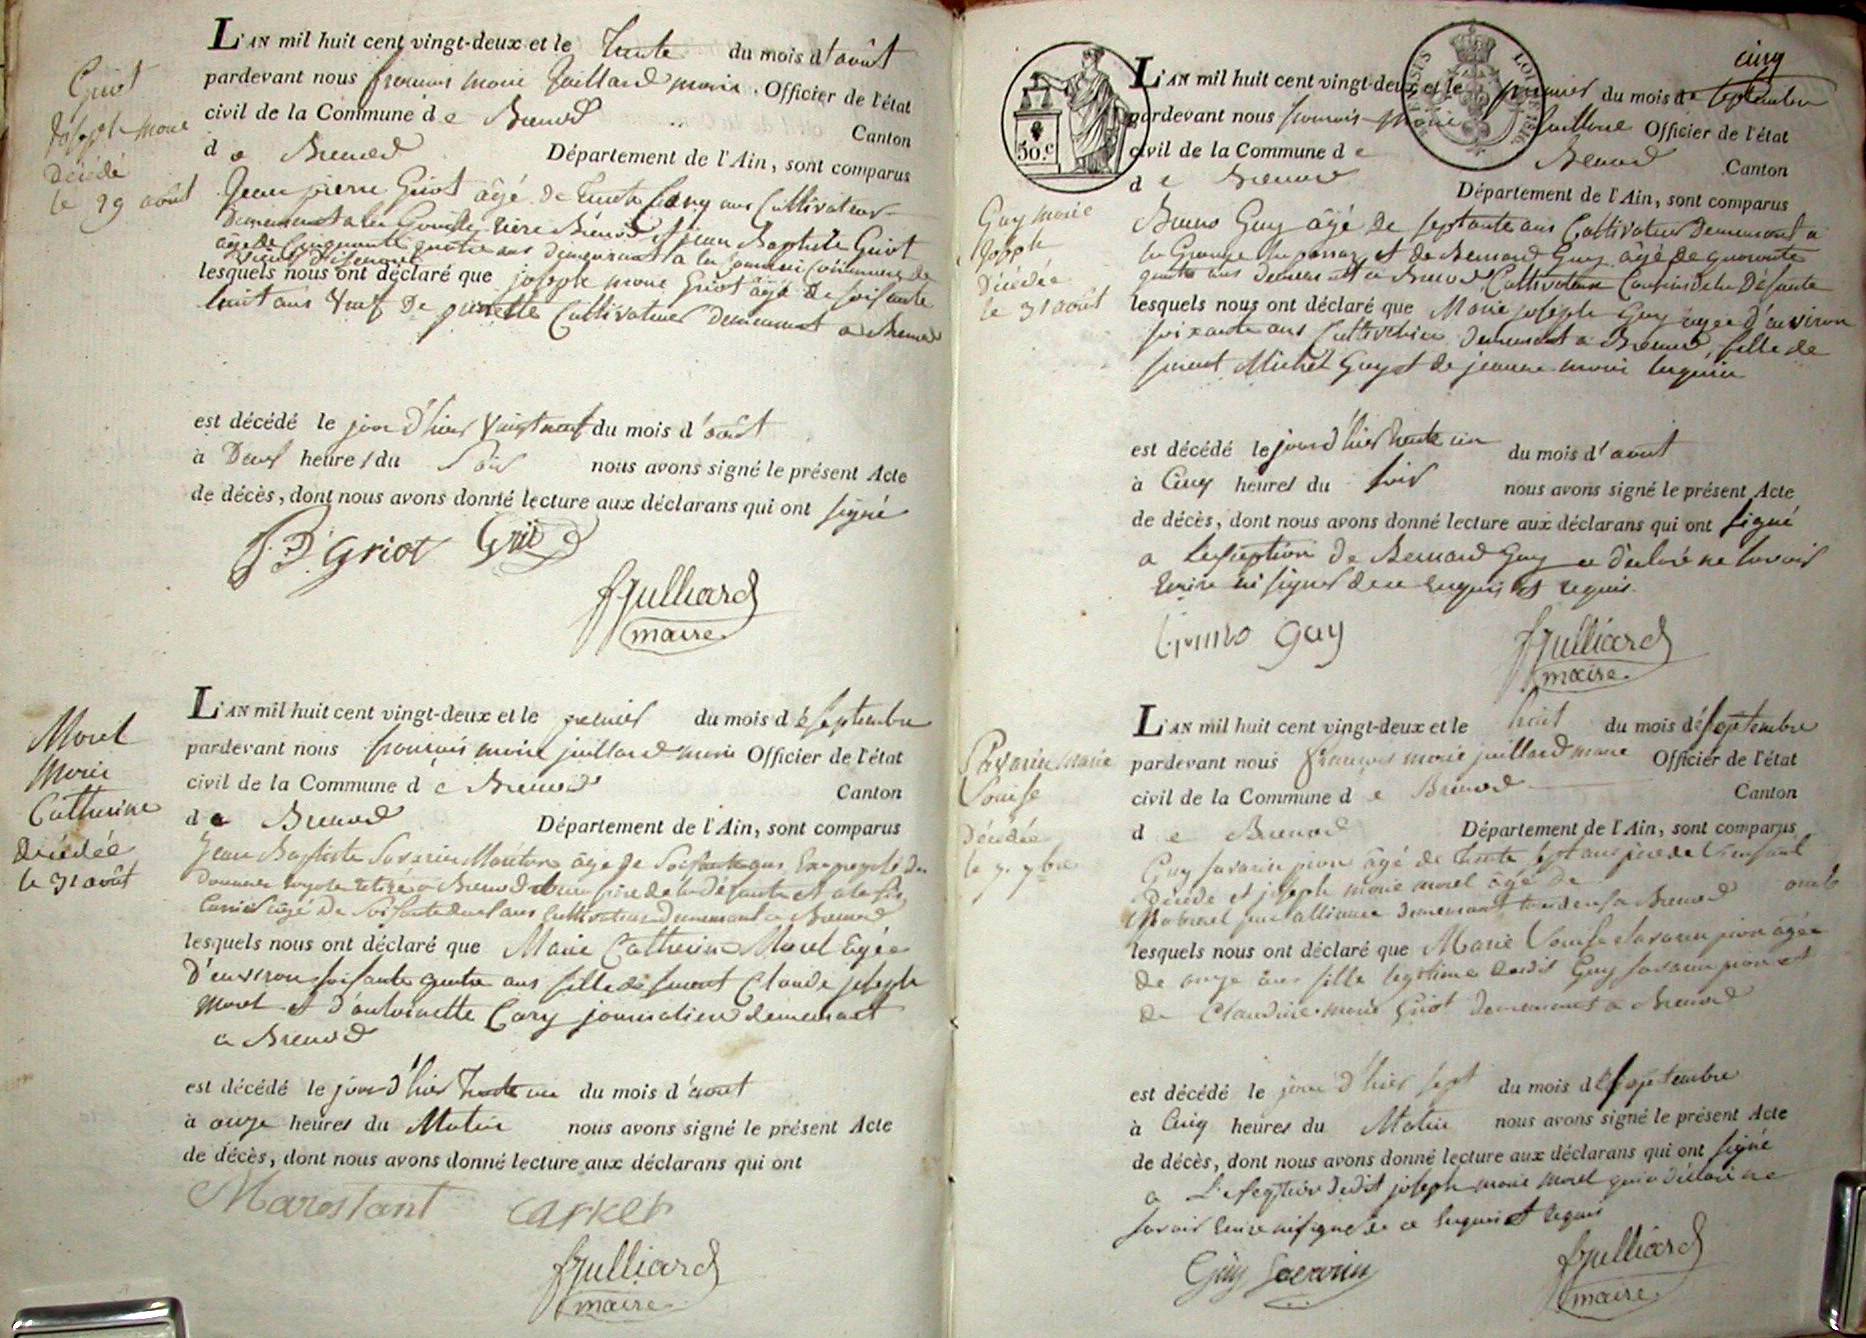 Griot
Joseph Marie
Décédé
le 29 août
L'AN mil huit cent vingt-deux et le trente du mois d'août
pardevant nous françois marie Juillard maire, Officier de l'état
civil de la Commune de Brenod Canton
de Brenod Département de l'Ain, sont comparus
Jean pierre Griot âgé de trente cinq ans Cultivateur
demeurant a la rière Brénod et jean Baptiste Griot
âgé de Cinquante quatre ans demeurant a la Commune de
lesquels nous ont déclaré que joseph marie Griot âgé de soisante
huit ans veuf De Cultivateur demeurant a Brenod
est décédé le jour d'hier vingt neuf du mois d'août
à Deux heures du Soir nous avons signé le présent Acte
de décès, dont nous avons donné lecture aux déclarans qui ont signé
J. B. Griot Griot
fJulliard
maire
Morel
Marie
Catherine
Décédée
le 31 août
L'AN mil huit cent vingt-deux et le premier du mois de Septembre
pardevant nous françois marie juillard maire Officier de l'état
civil de la Commune de Brenod Canton
de Brenod Département de l'Ain, sont comparus
Jean Baptiste Savarin âgé de Soisante ans Employé des
Douannes retiré a Brenod de la Défunte et
Carrier âgé de Soisante deux ans Cultivateur Demeurant a Brenod
lesquels nous ont déclaré que Marie Catherine Morel âgée
D'environ soisante quatre ans fille de Claude joseph
Morel et d'antoinette Cary journaliere demeurant
a Brenod
est décédé le jour d'hier trente un du mois d'août
à onze heures du Matin nous avons signé le présent Acte
de décès, dont nous avons donné lecture aux déclarans qui ont
Marostant carrier
fJulliard
maire
cinq
50.c
LOI DE 1816
Guy marie
Joseph
Décédée
le 31 août
L'AN mil huit cent vingt-deux et le premier du mois de Septembre
pardevant nous francois marie Juillard Officier de l'état
civil de la Commune de Brenod Canton
de Brenod Département de l'Ain, sont comparus
Bruno Guy âgé de septante ans Cultivateur Demeurant a
la Grange du et de Bernard Guy âgé de quarante
quatre ans demeurant a Brenod Cultivateur Cousins de la Défunte
lesquels nous ont déclaré que Marie joseph Guy agée d'environ
soixante ans Cultivatrice demeurant a Brenod fille de
Michel Guy et de jeanne marie
est décédé le jour d'hier trente un du mois d'août
à Cinq heures du soir nous avons signé le présent Acte
de décès, dont nous avons donné lecture aux déclarans qui ont signé
a L'exseption de Bernard Guy a declaré ne savoir
Ecrire ni signer de ce enquis et requis
bruno Guy
fJulliard
maire
Savarin marie
Louise
Décédée
le 7. 7bre
L'AN mil huit cent vingt-deux et le huit du mois de septembre
pardevant nous françois marie juillard maire Officier de l'état
civil de la Commune de Brenod Canton
de Brenod Département de l'Ain, sont comparus
Guy savarin pion âgé de trente sept ans pere de L'enfant
Décédé et joseph marie morel âgé de oncle
alliance demeurant tous deux a Brenod
lesquels nous ont déclaré que Marie Louise Savarin pion âgée
de onze ans fille legitime dudit Guy savarin pion et
de Claudine marie Griot demeurants a Brenod
est décédé le jour d'hier sept du mois de septembre
à Cinq heures du Matin nous avons signé le présent Acte
de décès, dont nous avons donné lecture aux déclarans qui ont signé
a L'exseption dudit joseph marie morel qui a déclaré ne
savoir Ecrire ni signer de ce enquis et requis
Guy Saverin
fJulliard
maire